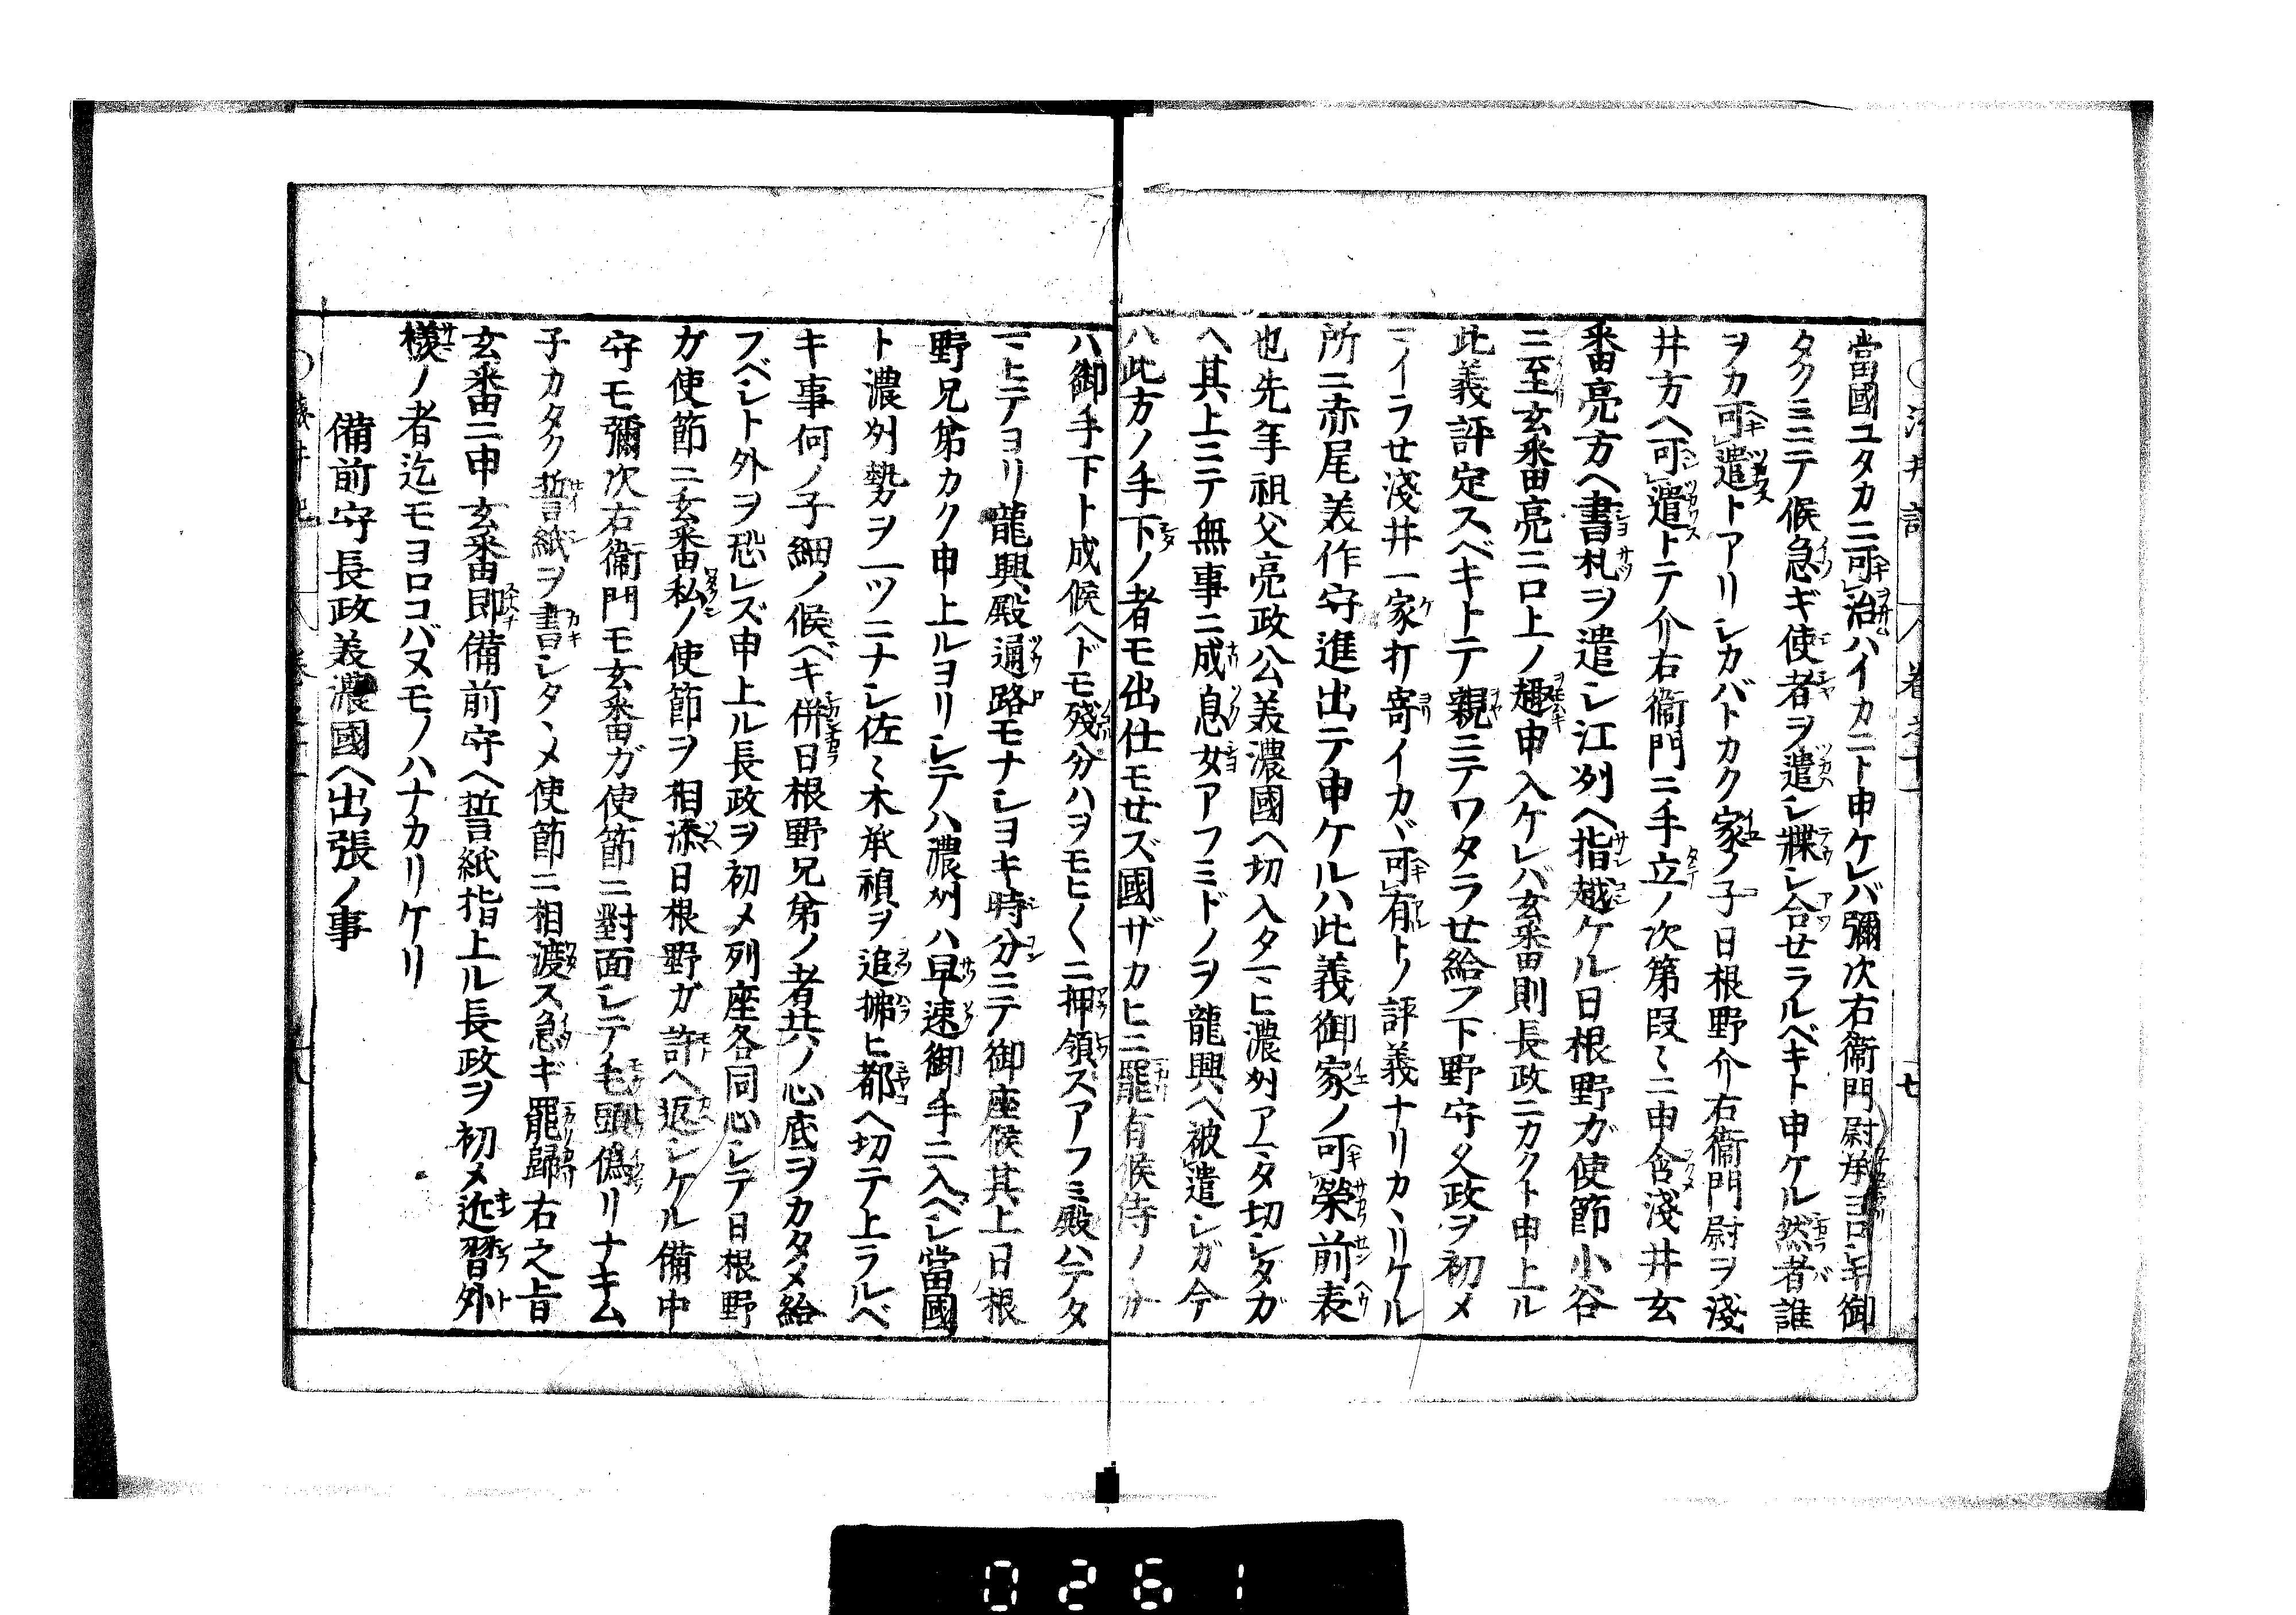 當國ユタカニ可治ハイカニト申ケレバ彌次右衞門尉承ヨロシキ御
タクミニテ候急ギ使者ヲ遣シ牒シ合セラルベキト申ケル然者誰
ヲカ可遣トアリシカバトカク家ノ子日根野介右衞門尉ヲ淺
井方ヘ可遣トテ介右衞門ニ手立ノ次第段〻ニ申含淺井玄
番亮方ヘ書札ヲ遣シ江刕ヘ指越ケル日根野ガ使節小谷
ニ至玄番亮ニ口上ノ趣申入ケレバ玄番則長政ニカクト申上ル
此義評定スベキトテ親ミテワタラセ給フ下野守久政ヲ初メ
マイラセ淺井一家打寄イカヾ可有トノ評義ナリカヽリケル
所ニ赤尾美作守進出テ申ケルハ此義御家ノ可榮前表
也先年祖父亮政公美濃國ヘ切入タマヒ濃刕アマタ切シタガ
ヘ其上ニテ無事ニ成息女アフミドノヲ龍興ヘ被遣シガ今
ハ此方ノ手下ノ者モ出仕モセズ國ザカヒニ罷有候侍ノ分
ハ御手下ト成候ヘドモ殘分ハヲモヒ〱ニ押領スアフミ殿ハテタ
マヒテヨリ龍興殿通路モナシヨキ時分ニテ御座候其上日根
野兄弟カク申上ルヨリシテハ濃刕ハ早速御手ニ入ベシ當國
ト濃刕勢ヲ一ツニナシ佐〻木承禎ヲ追拂ヒ都ヘ切テ上ラルベ
キ事何ノ子細ノ候ベキ併日根野兄弟ノ者共ノ心底ヲカタメ給
フベシト外ヲ恐レズ申上ル長政ヲ初メ列座各同心シテ日根野
ガ使節ニ玄番私ノ使節ヲ相添日根野ガ許ヘ返シケル備中
守モ彌次右衞門モ玄番ガ使節ニ對面シテ毛頭僞リナキム
子カタク誓紙ヲ書シタヽメ使節ニ相渡ス急ギ罷歸右之旨
玄番ニ申玄番即備前守ヘ誓紙指上ル長政ヲ初メ近習外
樣ノ者迄モヨロコバヌモノハナカリケリ
備前守長政美濃國ヘ出張ノ事
0261